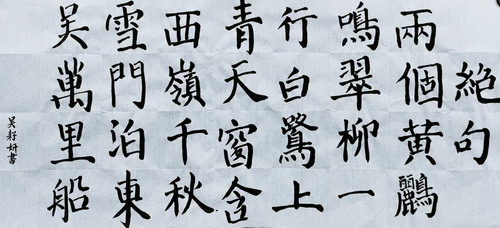 絕句
兩個黃鸝
鳴翠柳一
行白鷺上
青天窗含
西嶺千秋
雪門泊東
吳萬里船
吳籽妍書